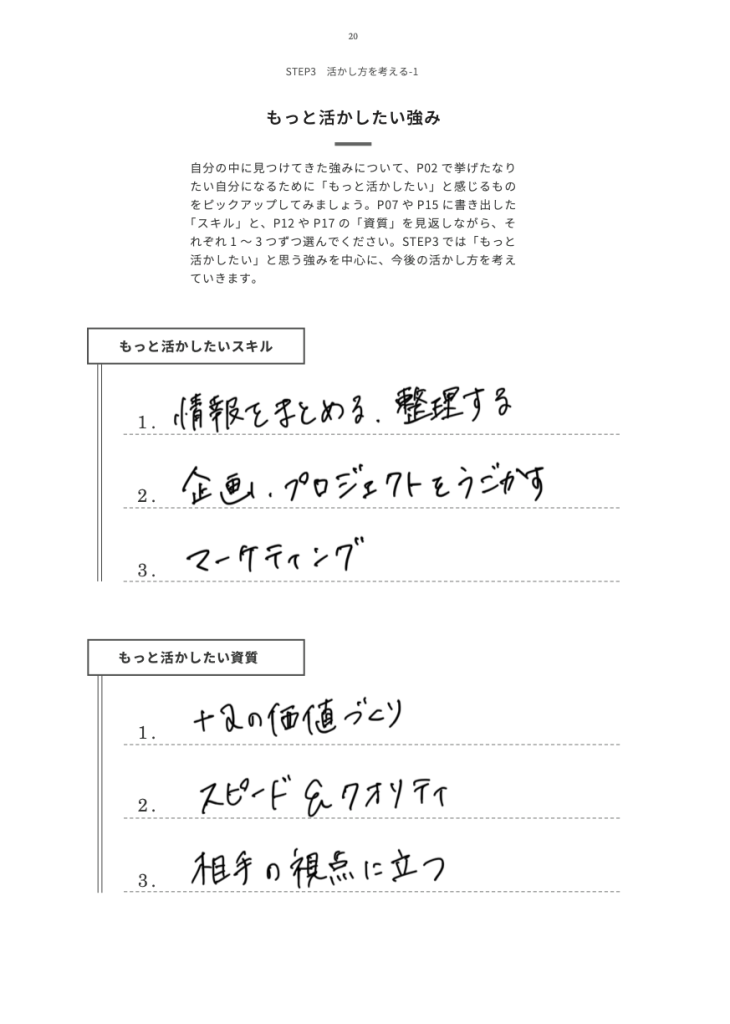 20
STEP3 活かし方を考える-1
もっと活かしたい強み
自分の中に見つけてきた強みについて、P02 で挙げたなり
たい自分になるために「もっと活かしたい」と感じるもの
をピックアップしてみましょう。P07 や P15 に書き出した
「スキル」と、P12 や P17 の「資質」を見返しながら、そ
れぞれ 1 〜 3 つずつ選んでください。STEP3 では「もっと
活かしたい」と思う強みを中心に、今後の活かし方を考え
ていきます。
もっと活かしたいスキル
1. 情報をまとめる、整理する
2. 企画、プロジェクトをうごかす
3. マーケティング
もっと活かしたい資質
1. +αの価値づくり
2. スピード & クオリティ
3. 相手の視点に立つ